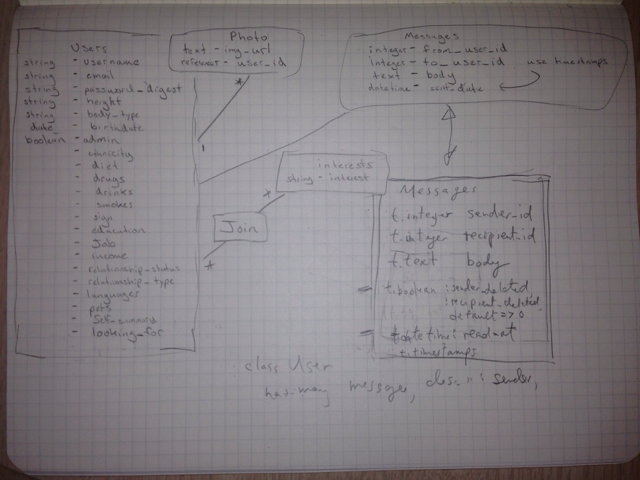 Users
string - username
string - email
string - password_digest
string - height
string - body_type
date - birthdate
boolean - admin
- ethnicity
- diet
- drugs
- drinks
- smokes
- sign
- education
- Job
- income
- relationship_status
- relationship_type
- languages
- pets
- looking_for
Photo
text - img-url
- user_id
*
1
Messages
integer - from_user_id
integer - to_user_id use timestamps
text - body
datetime - sent_date
interests
string - interest
*
Join
*
Messages
t.integer sender_id
t.integer recipient_id
t.text body
t.boolean :sender_deleted
:recipient_deleted
default => 0
t.datetime : read_at
t.timestamps
class User
has_many messages, class :: sender,